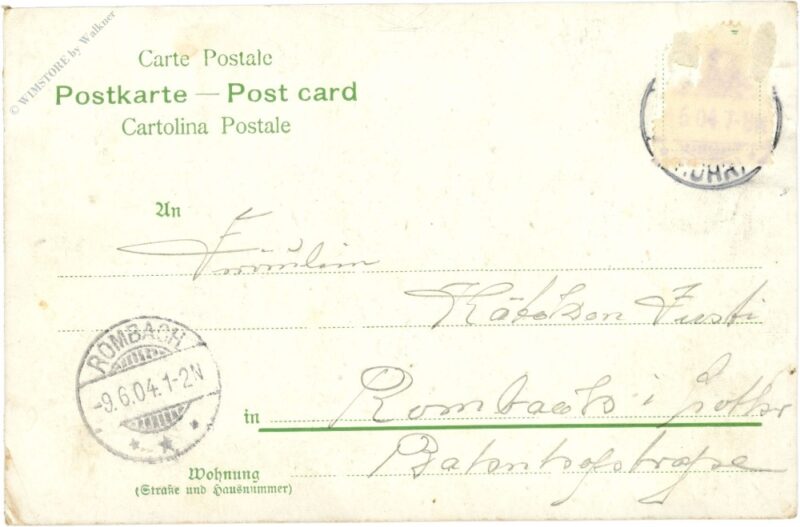 © WIMSTORE by Walkner
Carte Postale
Postkarte — Post card
Cartolina Postale
6 04 7-
An
Fräulein
Rombach i Lothr
in
Bahnhofstraße
ROMBACH
-9.6.04.1-2N
Wohnung
(Straße und Hausnummer)